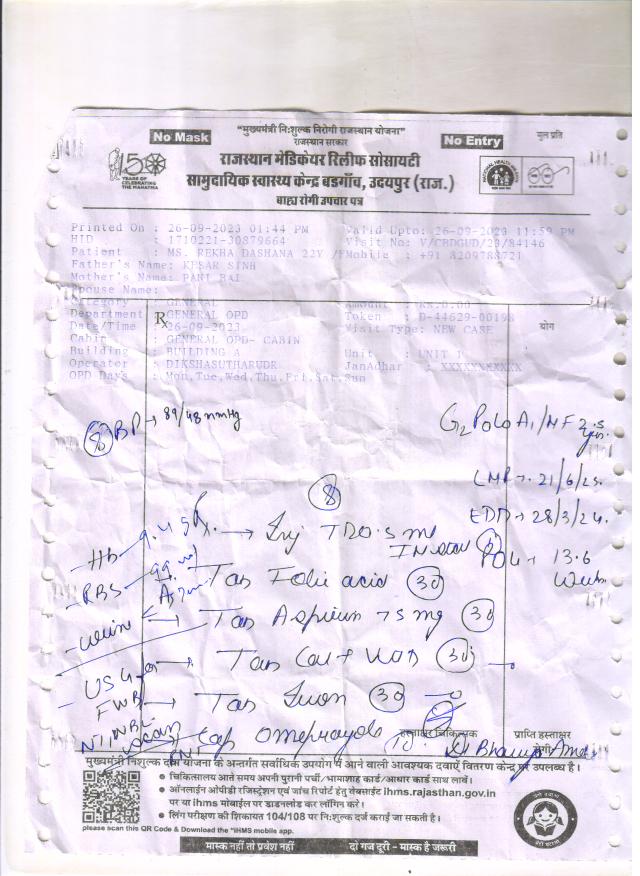 "मुख्यमंत्री निःशुल्क निरोगी राजस्थान योजना"
No Mask
राजस्थान सरकार
No Entry
मूल प्रति
150
YEARS OF
CELEBRATING
THE MAHATMA
राजस्थान मेडिकेयर रिलीफ सोसायटी
सामुदायिक स्वास्थ्य केन्द्र बडगाँव, उदयपुर (राज.)
बाह्य रोगी उपचार पत्र
Printed On : 26-09-2023 01:44 PM Valid Upto: 26-09-2023 11:59 PM
HID : 1710221-30879664 Visit No: V/CBDGUD/23/84146
Patient : MS. REKHA DASHANA 22Y /F Mobile : +91 8209788721
Father's Name: KESAR SINH
Mother's Name: PANI BAI
Spouse Name:
Category : GENERAL Amount : RS.0.00
Department : GENERAL OPD Token : D-44629-00198
Rx
योग
Date/Time : 26-09-2023 Visit Type: NEW CASE
Cabin : GENERAL OPD- CABIN
Building : BUILDING A Unit : UNIT 1
Operator : DIKSHASUTHARUDR JanAadhar : XXXXXXXXXX
OPD Days : Mon,Tue,Wed,Thu,Fri,Sat,Sun
BP → 89/48 mmHg
G2P0L0A1/MF 2
LMP → 21/6/23.
EDD → 28/3/24.
POG → 13.6
Week
Hb 9.4
→ Inj TD 0.5 ml
RBS 99
Tab Folic acid 30
Urine
→ Tab Aspirin 75 mg 30
USG
→ Tab Cal + 30
FWB
→ Tab Iron 30
NT/NB
scan
Cap Omeprazole
हस्ताक्षर चिकित्सक
प्राप्ति हस्ताक्षर
रोगी
मुख्यमंत्री निःशुल्क दवा योजना के अन्तर्गत सर्वाधिक उपयोग में आने वाली आवश्यक दवाऐं वितरण केन्द्र पर उपलब्ध है।
• चिकित्सालय आते समय अपनी पुरानी पर्ची/भामाशाह कार्ड/आधार कार्ड साथ लावें।
• ऑनलाईन ओपीडी रजिस्ट्रेशन एवं जांच रिपोर्ट हेतु वेबसाईट ihms.rajasthan.gov.in
पर या ihms मोबाईल पर डाउनलोड कर लॉगिन करें।
• लिंग परीक्षण की शिकायत 104/108 पर निःशुल्क दर्ज कराई जा सकती है।
please scan this QR Code & Download the "IHMS mobile app.
मास्क नहीं तो प्रवेश नहीं दो गज दूरी - मास्क है जरूरी